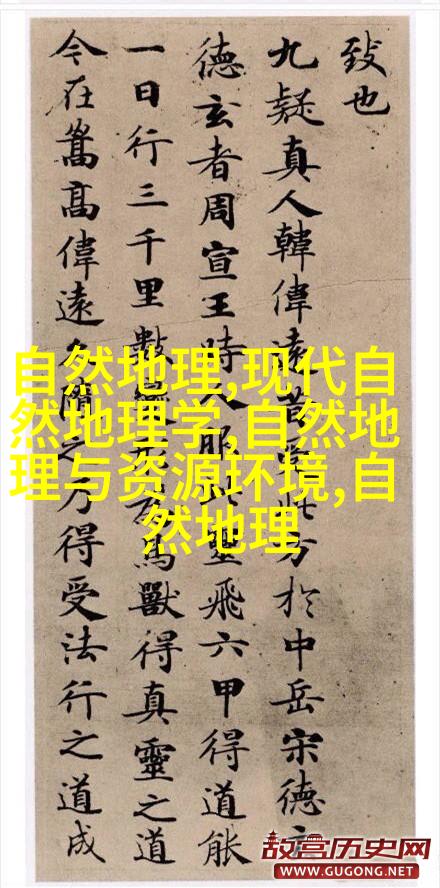 致也
九疑真人韓偉遠昔受此方於中岳宋德玄
德玄者周宣王時人服此靈飛六甲得道能
一日行三千里數變形為鳥獸得真靈之道
今在嵩高偉遠久隨之乃得受法行之道成
自然地理,现代自
然地理学,自然地
理与资源环境,自
然地理
故宫历史网
WWW.GUGONG.NET